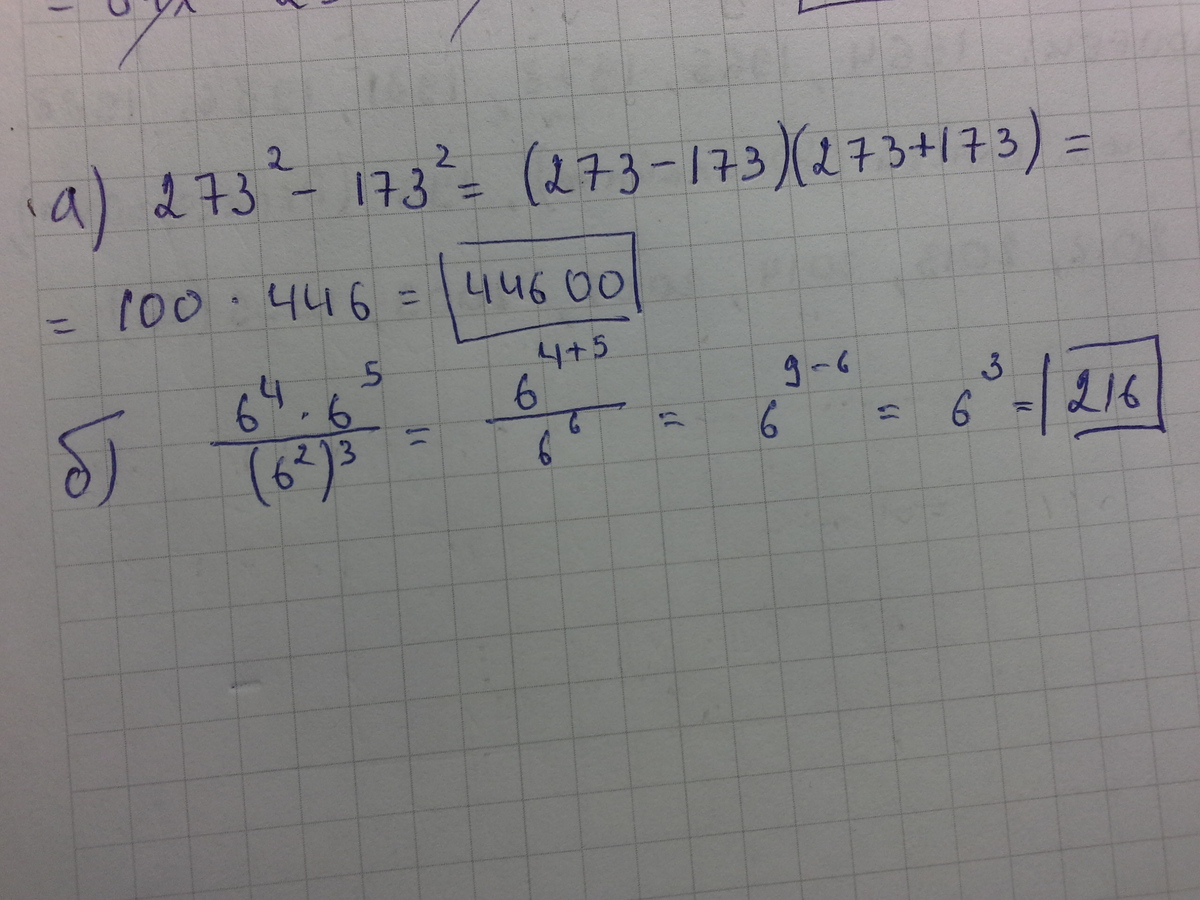 а) 273² - 173² = (273 - 173)(273 + 173) =
= 100 · 446 = 44600
б) (6⁴ · 6⁵)/(6²)³ = 6⁴⁺⁵/6⁶ = 6⁹⁻⁶ = 6³ = 216